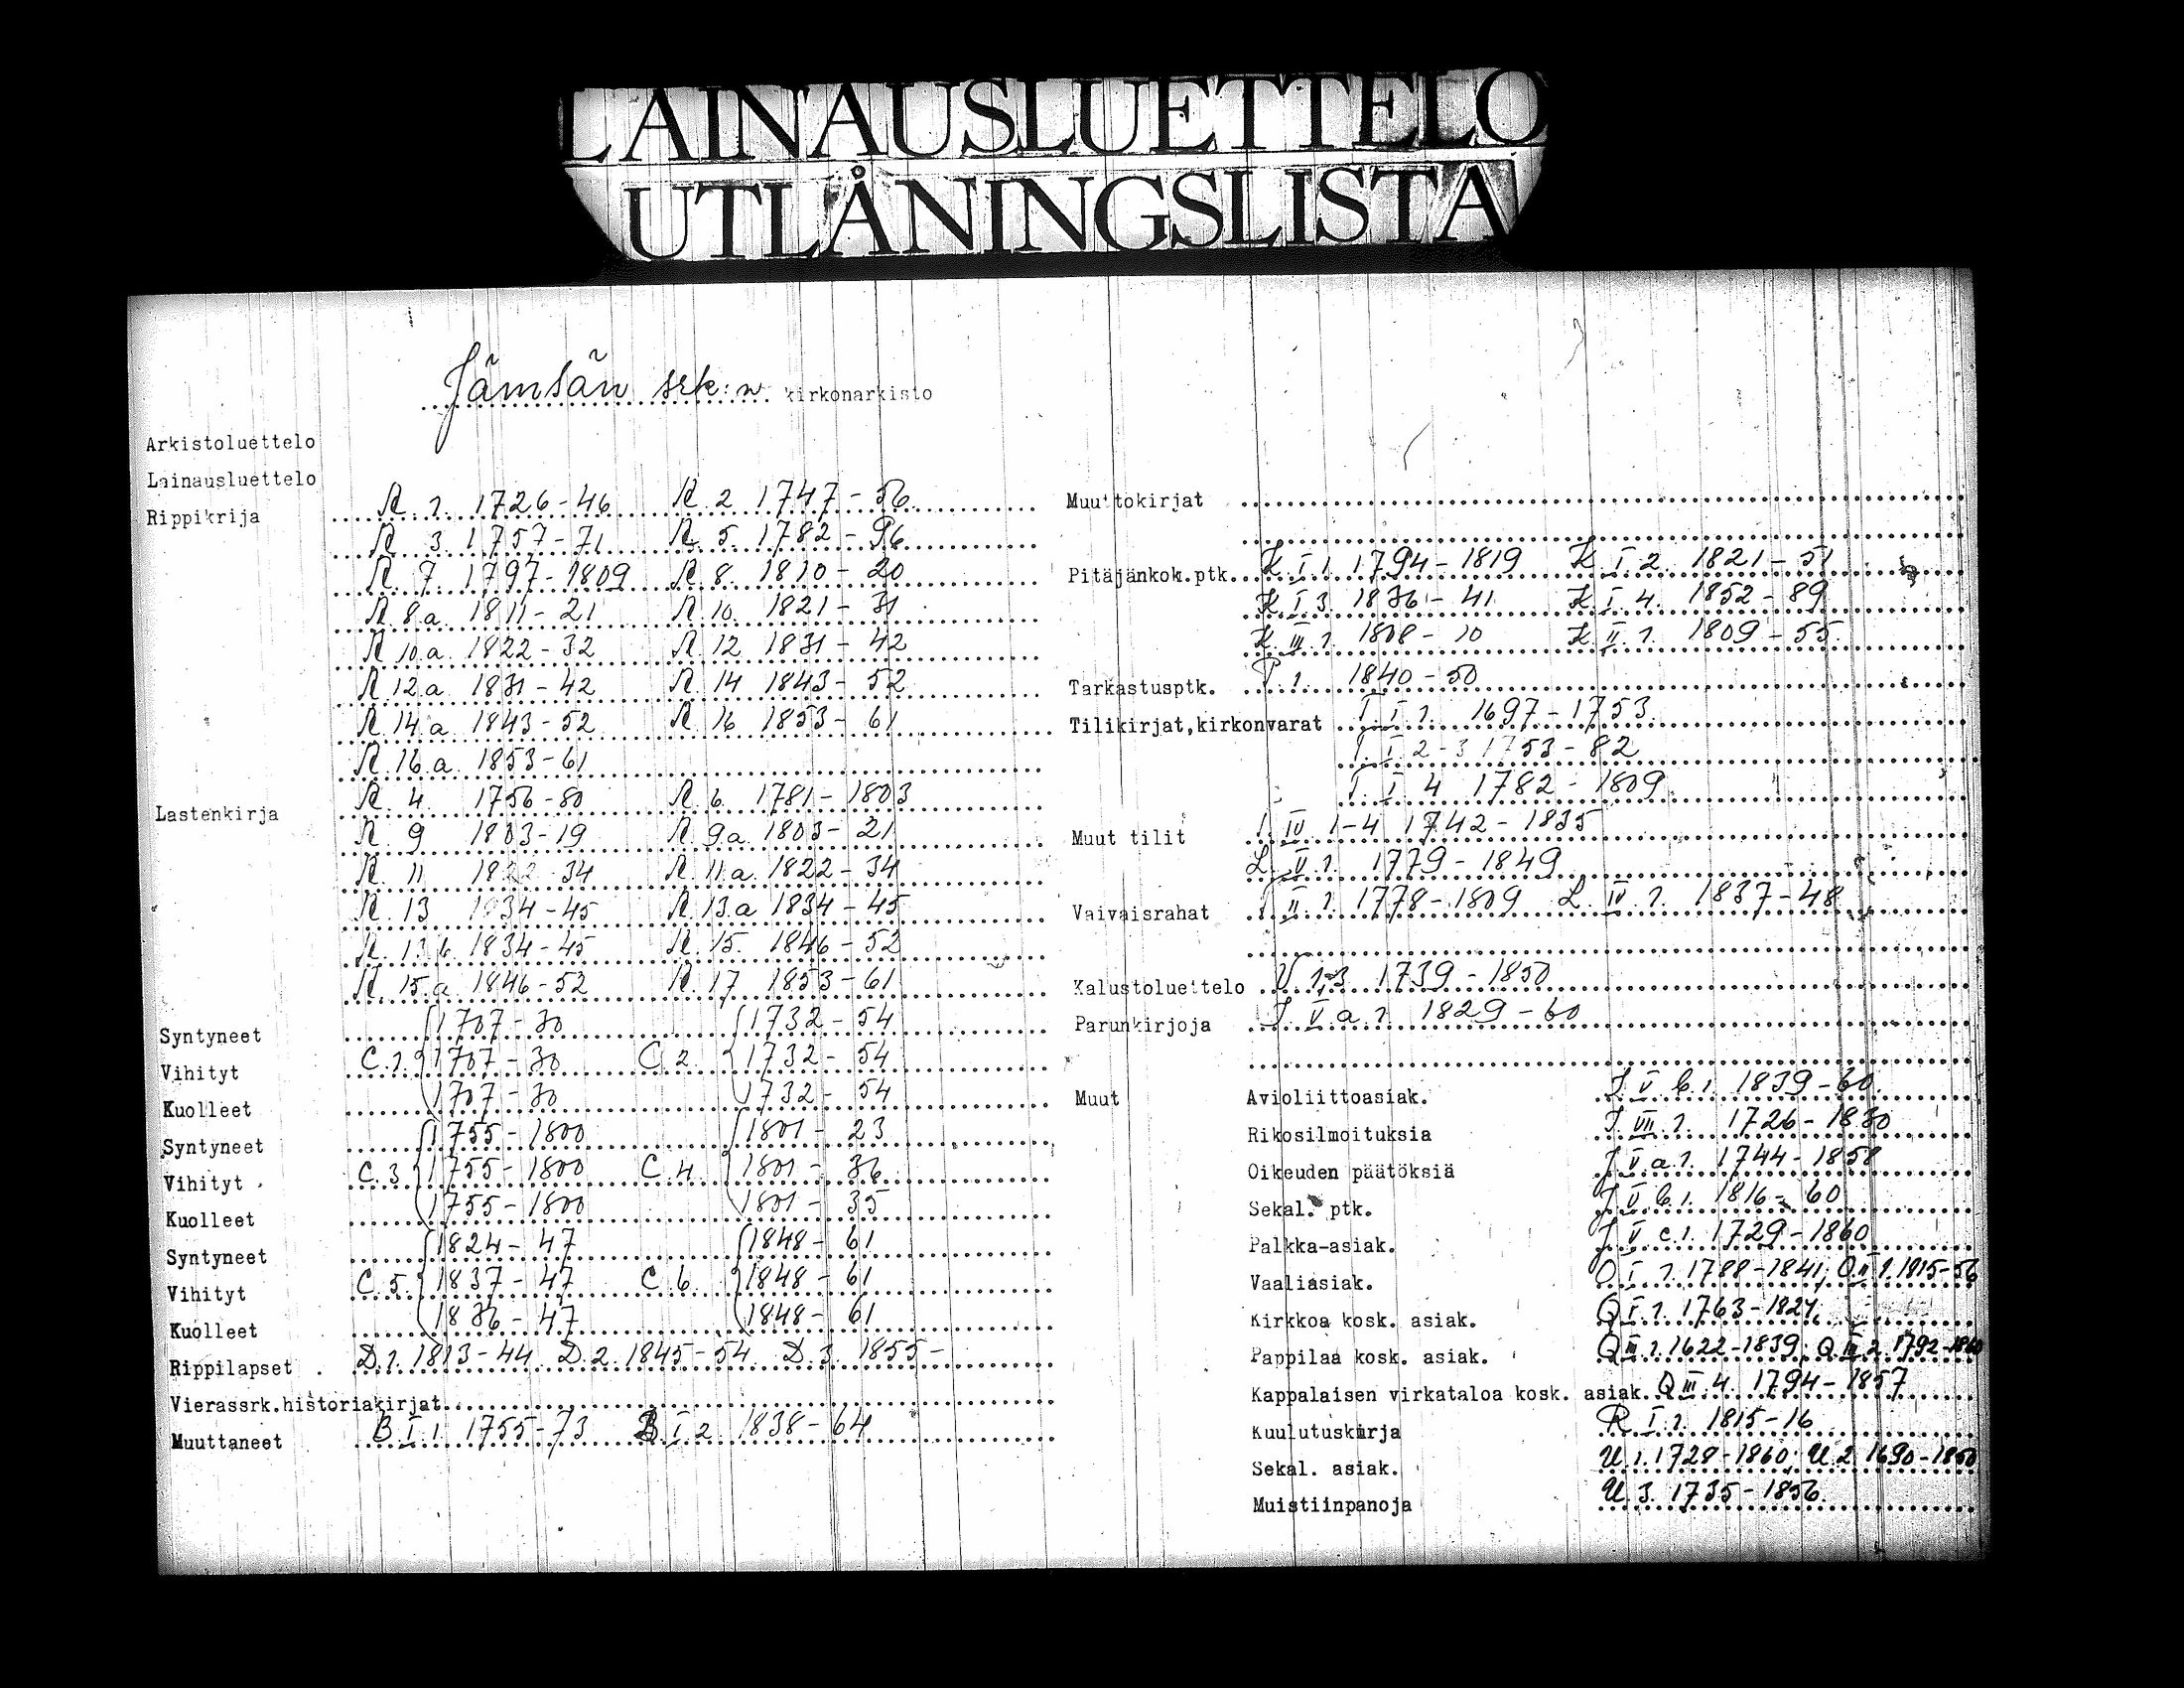 LAINAUSLUETTELO
UTLÅNINGSLISTA
Jämsän srk:n kirkonarkisto
Arkistoluettelo
Lainausluettelo
Rippikrija R. 1. 1726-46 R. 2 1747-56
R. 3. 1757-71 R. 5. 1782-96
R. 7. 1797-1809 R. 8. 1810-20
R. 8.a. 1811-21 R. 10. 1821-31
R. 10.a. 1822-32 R. 12 1831-42
R. 12.a. 1831-42 R. 14 1843-52
R. 14.a 1843-52 R. 16 1853-61
R. 16.a. 1853-61
Lastenkirja R. 4. 1756-80 R. 6. 1781-1803
R. 9 1803-19 R. 9a. 1803-21
R. 11 1822-34 R. 11.a. 1822-34
R. 13 1834-45 R. 13.a 1834-45
R. 13.b. 1834-45 R. 15. 1846-52
R. 15.a. 1846-52 R. 17 1853-61
Syntyneet 1707-30 1732-54
Vihityt C. 1. 1707-30 C. 2. 1732-54
Kuolleet 1707-30 1732-54
Syntyneet 1755-1800 1801-23
Vihityt C. 3. 1755-1800 C. 4. 1801-36
Kuolleet 1755-1800 1801-35
Syntyneet 1824-47 1848-61
Vihityt C. 5. 1837-47 C. 6. 1848-61
Kuolleet 1836-47 1848-61
Rippilapset D. 1. 1813-44 D. 2. 1845-54 D. 3. 1855-
Vierassrk.historiakirjat
Muuttaneet B I. 1. 1755-73 B. I. 2. 1838-64
Muuttokirjat
Pitäjänkok.ptk. K. I. 1. 1794-1819 K. I. 2. 1821-51
K. I. 3. 1836-41 K. I. 4. 1852-89
K. III. 1. 1808-10 K. II. 1. 1809-55.
Tarkastusptk. 1. 1840-50
Tilikirjat,kirkonvarat I. 1. 1697-1753
I. 2-3 1753-82
I. 4 1782-1809
Muut tilit IV. 1-4 1742-1835
L. V. 1. 1779-1849
Vaivaisrahat II. 1. 1778-1809 L. IV. 1. 1837-48
Kalustoluettelo 1,3 1739-1850
Parunkirjoja J. V. a. 1. 1829-60
Muut Avioliittoasiak. J. V. b. 1. 1839-60.
Rikosilmoituksia J. VII. 1. 1726-1830
Oikeuden päätöksiä J. V. a. 1. 1744-1858
Sekal. ptk. J. V. b. 1. 1816-60
Palkka-asiak. J. V. c. 1. 1729-1860
Vaaliasiak. O. I. 1. 1788-1841; O. II. 1. 1815-56
Kirkkoa kosk. asiak. Q I. 1. 1763-1824
Pappilaa kosk. asiak. Q III. 1. 1622-1839; Q. III. 2. 1792-1860
Kappalaisen virkataloa kosk. asiak. Q III. 4. 1794-1857
Kuulutuskirja R. I. 1. 1815-16
Sekal. asiak. U. 1. 1728-1860; U. 2. 1690-1850
Muistiinpanoja U. 3. 1735-1856.